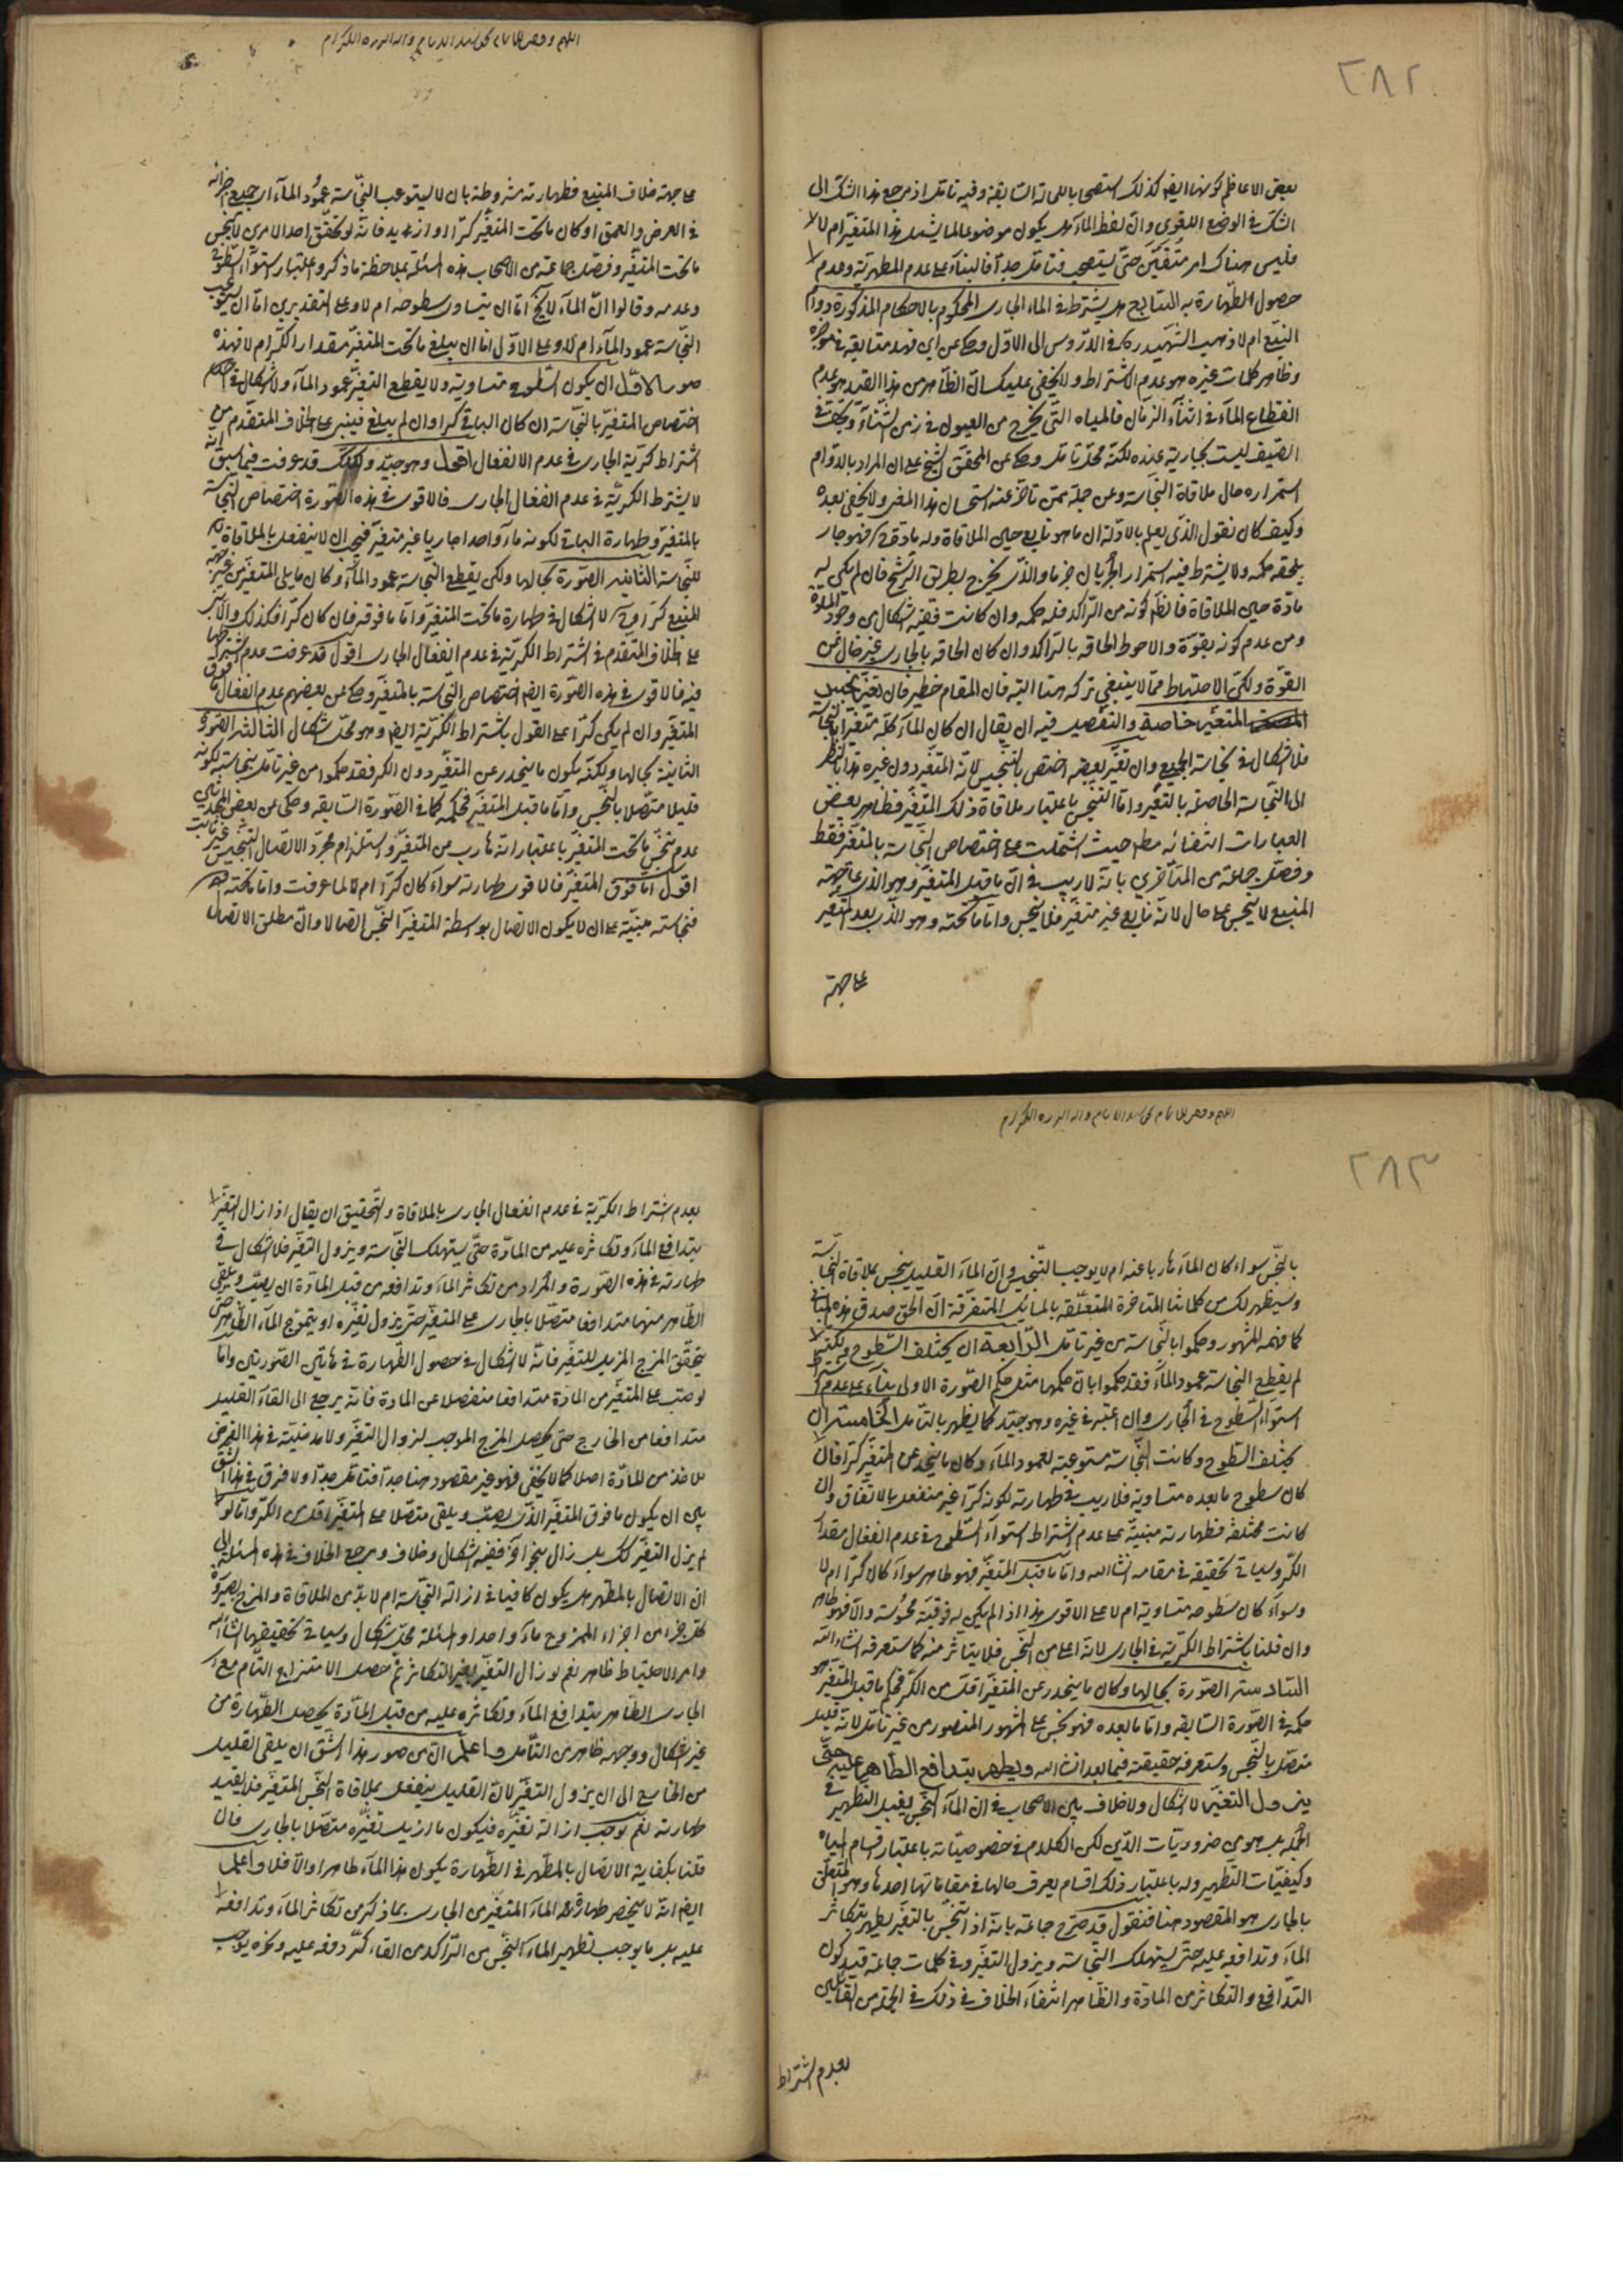 ٢٨٢
بعض الاعاظم كونها ايضا كذلك استصحابا للحالة السابقة وفيه تأمل اذ مرجع هذا الشك الى
الشك في الوضع اللغوي وان لفظ الماء هل يكون موضوعا لما يشمل هذا المتغير ام لا
فليس هناك امر متيقن حتى يستصحب فتأمل جدا فالبناء على عدم المطهرية وعدم
حصول الطهارة به السابع هل يشترط في الماء الجاري المحكوم بالاحكام المذكورة دوام
النبع ام لا ذهب الشهيد ره في الدروس الى الاول وحكى عن ابن فهد متابعته في موجزه
وظاهر كلمات غيره هو عدم الاشتراط ولا يخفى عليك ان الظاهر من هذا القيد هو عدم
انقطاع الماء في اثناء الزمان فالمياه التي تخرج من العيون في زمن الشتاء وتجف في
الصيف ليست بجارية عنده لكنه محل تأمل وحكى عن المحقق الشيخ على ان المراد بالدوام
استمراره حال ملاقاة النجاسة وعن جملة ممن تأخر عنه استحسان هذا المعنى ولا يخفى بعده
وكيف كان نقول الذي يعلم بالادلة ان ما هو نابع حين الملاقاة وله مادة فهو جار
يلحقه حكمه ولا يشترط فيه استمرار الجريان جزما والذي يخرج بطريق الرشح فان لم يكن له
مادة حين الملاقاة فالظاهر كونه من الراكد فله حكمه وان كانت ففيه اشكال من وجود المادة
ومن عدم كونه بقوة والاحوط الحاقه بالراكد وان كان الحاقه بالجاري غير خال عن
القوة ولكن الاحتياط مما لا ينبغي تركه هنا البتة فان المقام خطير فان تغير بعضه
المتغير خاصة والتفصيل فيه ان يقال ان كان الماء كله متغيرا بالنجاسة
فلا اشكال في نجاسة الجميع وان تغير بعضه اختص بالتنجيس لانه المتغير دون غيره هذا بالنظر
الى النجاسة الحاصلة بالتغير واما التنجس باعتبار ملاقاة ذلك المتغير فظاهر بعض
العبارات انتفائه مطلقا حيث اشتملت على اختصاص النجاسة بالمتغير فقط
وفصل جماعة من المتأخرين بانه لا ريب في ان ما قبل المتغير وهو الذي على جهة
المنبع لا ينجس على حال لانه نابع غير متغير فلا ينجس واما ما تحته وهو الذي بعد المتغير
على جهة
على جهة خلاف المنبع فطهارته مشروطة بان لا يستوعب النجاسة عمود الماء اي جميع اجزائه
في العرض والعمق او كان ما تحت المتغير كرا او ازيد فانه لو تحقق احد الامرين لا ينجس
ما تحت المتغير وفصل جماعة من الاصحاب هذه المسئلة بملاحظة ما ذكر واعتبار استواء السطوح
وعدمه وقالوا ان الماء لا يخ اما ان يتساوى سطوحه ام لا وعلى التقديرين اما ان يستوعب
النجاسة عمود الماء ام لا وعلى الاول اما ان يبلغ ما تحت المتغير مقدار الكر ام لا فهذه
صور الاول ان يكون السطوح متساوية ولا يقطع التغير عمود الماء ولا اشكال في الحكم
اختصاص المتغير بالنجاسة ان كان الباقي كرا وان لم يبلغ فيبنى على الخلاف المتقدم من
اشتراط كرية الجاري في عدم الانفعال اقول وهو جيد ولكنك قد عرفت فيما سبق انه
لا يشترط الكرية في عدم انفعال الجاري فالاقوى في هذه الصورة اختصاص النجاسة
بالمتغير وطهارة الباقي لكونه ماء واحدا جاريا غير متغير فيجب ان لا ينفعل بالملاقاة
للنجاسة الثانية الصورة بحالها ولكن يقطع النجاسة عمود الماء وكان ما يلي المتغير من غير جهة
المنبع كرا وح لا اشكال في طهارة ما تحت المتغير واما ما فوقه فان كان كرا فكذلك والا بنى
على الخلاف المتقدم في اشتراط الكرية في عدم انفعال الجاري اقول قد عرفت عدم اشتراطها
فيه فالاقوى في هذه الصورة ايضا اختصاص النجاسة بالمتغير وحكى عن بعضهم عدم انفعال ما فوق
المتغير وان لم يكن كرا على القول باشتراط الكرية ايضا وهو محل اشكال الثالثة الصورة
الثانية بحالها ولكنه يكون ما ينحدر عن المتغير دون الكر فقد حكموا من غير تأمل بنجاسته لكونه
قليلا متصلا بالنجس واما ما قبل المتغير فحكمه كما في الصورة السابقة وحكى عن بعض المحدثين
عدم تنجس ما تحت المتغير باعتبار انه هارب من المتغير واستلزام مجرد الاتصال التنجيس غير ثابت
اقول اما فوق المتغير فالاقوى طهارته سواء كان كرا ام لا لما عرفت واما ما تحته
فنجاسته مبنية على ان لا يكون الاتصال بواسطة المتغير النجس اتصالا وان مطلق الاتصال
٢٨٣
بالنجس سواء كان الماء هاربا عنه ام لا يوجب التنجيس وان الماء القليل ينجس بملاقاة النجاسة
وسيظهر لك من كلماتنا المتأخرة المتعلقة بالمسائل المتفرقة ان الحق صدق هذه المباني
كما فهمه المشهور وحكموا بالنجاسة من غير تأمل الرابعة ان يختلف السطوح ولكنه
لم يقطع النجاسة عمود الماء فقد حكموا بان حكمها مثل حكم الصورة الاولى بناء على عدم اشتراط
استواء السطوح في الجاري وان اعتبر في غيره وهو جيد كما يظهر بالتأمل الخامسة ان
يختلف السطوح وكانت النجاسة مستوعبة لعمود الماء وكان ما ينحدر عن المتغير كرا فان
كان سطوح ما بعده متساوية فلا ريب في طهارته لكونه كرا غير منفعل بالاتفاق وان
كانت مختلفة فطهارته مبنية على عدم اشتراط استواء السطوح في عدم انفعال مقدار
الكر وسياتي تحقيقه في مقامه انشاالله واما ما قبل المتغير فهو طاهر سواء كان كرا ام لا
وسواء كان سطوحه متساوية ام لا على الاقوى هذا اذا لم يكن له فوقية محسوسة والا فهو طاهر
وان قلنا باشتراط الكرية في الجاري لانه اعلى من النجس فلا يتاثر منه كما ستعرفه انشاء الله
السادسة الصورة بحالها وكان ما ينحدر عن المتغير اقل من الكر فحكم ما قبل المتغير هو
حكمه في الصورة السابقة واما ما بعده فهو نجس على المشهور المنصور من غير تأمل لانه قليل
متصل بالنجس وستعرف حقيقته فيما بعد انشاء الله ويطهر بتدافع الطاهر عليه حتى
يزول التغير لا اشكال ولا خلاف بين الاصحاب في ان الماء النجس يقبل التطهير في
الجملة بل هو من ضروريات الدين لكن الكلام في خصوصياته باعتبار اقسام المياه
وكيفيات التطهير وله باعتبار ذلك اقسام يعرف حالها في مقاماتها احدها وهو المتعلق
بالجاري هو المقصود هنا فنقول قد صرح جماعة بانه اذا تنجس بالتغير يطهر بتكاثر
الماء وتدافعه عليه حتى يستهلك النجاسة ويزول التغير وفي كلمات جماعة قيد كون
التدافع والتكاثر من المادة والظاهر انتفاء الخلاف في ذلك في الجملة من القائلين
بعدم اشتراط
بعدم اشتراط الكرية في عدم انفعال الجاري بالملاقاة والتحقيق ان يقال اذا زال التغير
بتدافع الماء وتكاثره عليه من المادة حتى يستهلك النجاسة ويزول التغير فلا اشكال في
طهارته في هذه الصورة والمراد من تكاثر الماء وتدافعه من قبل المادة ان يصب ويلقى
الطاهر منها متدافعا متصلا بالجاري على المتغير حتى يزول تغيره او يتموج الماء الطاهر حتى
يتحقق المزج المزيل للتغير فانه لا اشكال في حصول الطهارة في هاتين الصورتين واما
لو صب على المتغير من المادة متدافعا منفصلا عن المادة فانه يرجع الى القاء القليل
متدافعا من الخارج حتى يحصل المزج الموجب لزوال التغير ولا مدخلية في هذا الفرض
للاخذ من المادة اصلا كما لا يخفى فهو غير مقصود هنا جدا فتأمل جدا ولا فرق في هذا الشق
بين ان يكون ما فوق المتغير الذي يصب ويلقى متصلا على المتغير اقل من الكر واما لو
لم يزل التغير كك بل زال بنحو آخر ففيه اشكال وخلاف ومرجع الخلاف في هذه المسئلة الى
ان الاتصال بالمطهر هل يكون كافيا في ازالة النجاسة ام لا بد من الملاقاة والمزج بصيرورة
كل جزء من اجزاء الممزوج ماء واحدا والمسئلة محل اشكال وسياتي تحقيقها انشاءالله
وامر الاحتياط ظاهر نعم لو زال التغير بغير التكاثر ثم حصل الامتزاج التام مع
الجاري الطاهر بتدافع الماء وتكاثره عليه من قبل المادة يحصل الطهارة من
غير اشكال ووجهه ظاهر من التأمل واعلم ان من صور هذا الشق ان يلقى القليل
من الخارج الى ان يزول التغير لان القليل ينفعل بملاقاة النجس المتغير فلا يفيد
طهارته نعم يوجب ازالة تغيره فيكون ما ازيل تغيره متصلا بالجاري فان
قلنا بكفاية الاتصال بالمطهر في الطهارة يكون هذا الماء طاهرا والا فلا واعلم
ايضا انه لا ينحصر طهارة الماء المتغير من الجاري بما ذكر من تكاثر الماء وتدافعه
عليه بل ما يوجب تطهير الماء النجس من الراكد من القاء كر دفعة عليه ونحوه يوجب